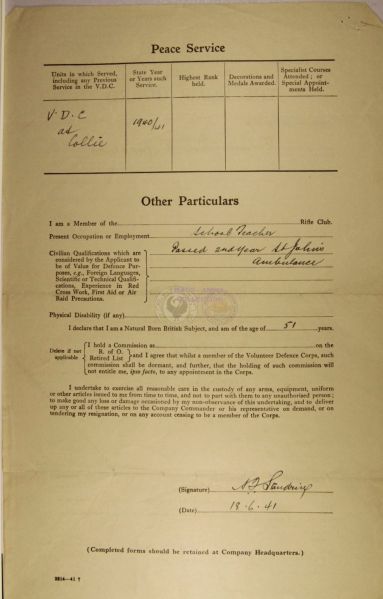 Peace Service
Units in which Served, including any Previous Service in the V.D.C.
State Year or Years such Service.
Highest Rank held.
Decorations and Medals Awarded.
Specialist Courses Attended; or Special Appointments Held.
V.D.C
at
Collie
1940/41
Other Particulars
I am a Member of the Rifle Club.
Present Occupation or Employment School Teacher
Civilian Qualifications which are
considered by the Applicant to
be of Value for Defence Pur-
poses, e.g., Foreign Languages,
Scientific or Technical Qualifi-
cations, Experience in Red
Cross Work, First Aid or Air
Raid Precautions.
Passed 2nd Year St John's
Ambulance
Physical Disability (if any)
I declare that I am a Natural Born British Subject, and am of the age of 51 years.
Delete if not
applicable
I hold a Commission as on the
R. of O.
Retired List
and I agree that whilst a member of the Volunteer Defence Corps, such
commission shall be dormant, and further, that the holding of such commission will
not entitle me, ipso facto, to any appointment in the Corps.
I undertake to exercise all reasonable care in the custody of any arms, equipment, uniform
or other articles issued to me from time to time, and not to part with them to any unauthorised person;
to make good any loss or damage occasioned by my non-observance of this undertaking, and to deliver
up any or all of these articles to the Company Commander or his representative on demand, or on
tendering my resignation, or on any account ceasing to be a member of the Corps.
(Signature)
(Date) 18.6.41
(Completed forms should be retained at Company Headquarters.)